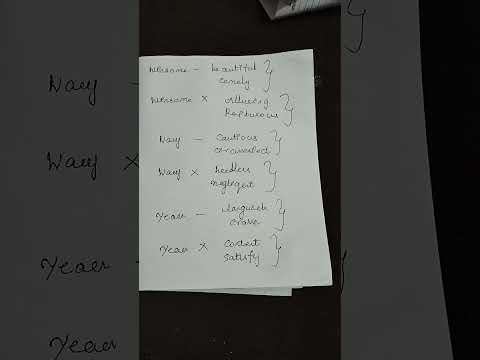 Winsome - beautiful
comely
Winsome × Alluring
Rapturous
Wary - Cautious
circumspect
Wary × heedless
neglegent
Yearn - languish
crave
Yearn × content
satisfy